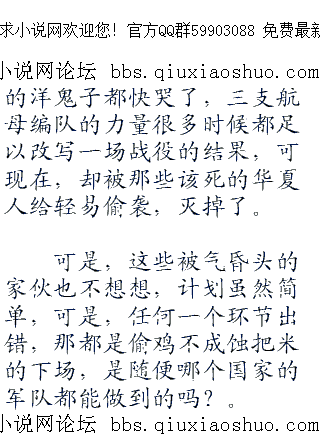 求小说网欢迎您！官方QQ群59903088 免费最新
小说网论坛 bbs.qiuxiaoshuo.com
的洋鬼子都快哭了，三支航
母编队的力量很多时候都足
以改写一场战役的结果，可
现在，却被那些该死的华夏
人给轻易偷袭，灭掉了。
可是，这些被气昏头的
家伙也不想想，计划虽然简
单，可是，任何一个环节出
错，那都是偷鸡不成蚀把米
的下场，是随便哪个国家的
军队都能做到的吗？。
小说网论坛 bbs.qiuxiaoshuo.com